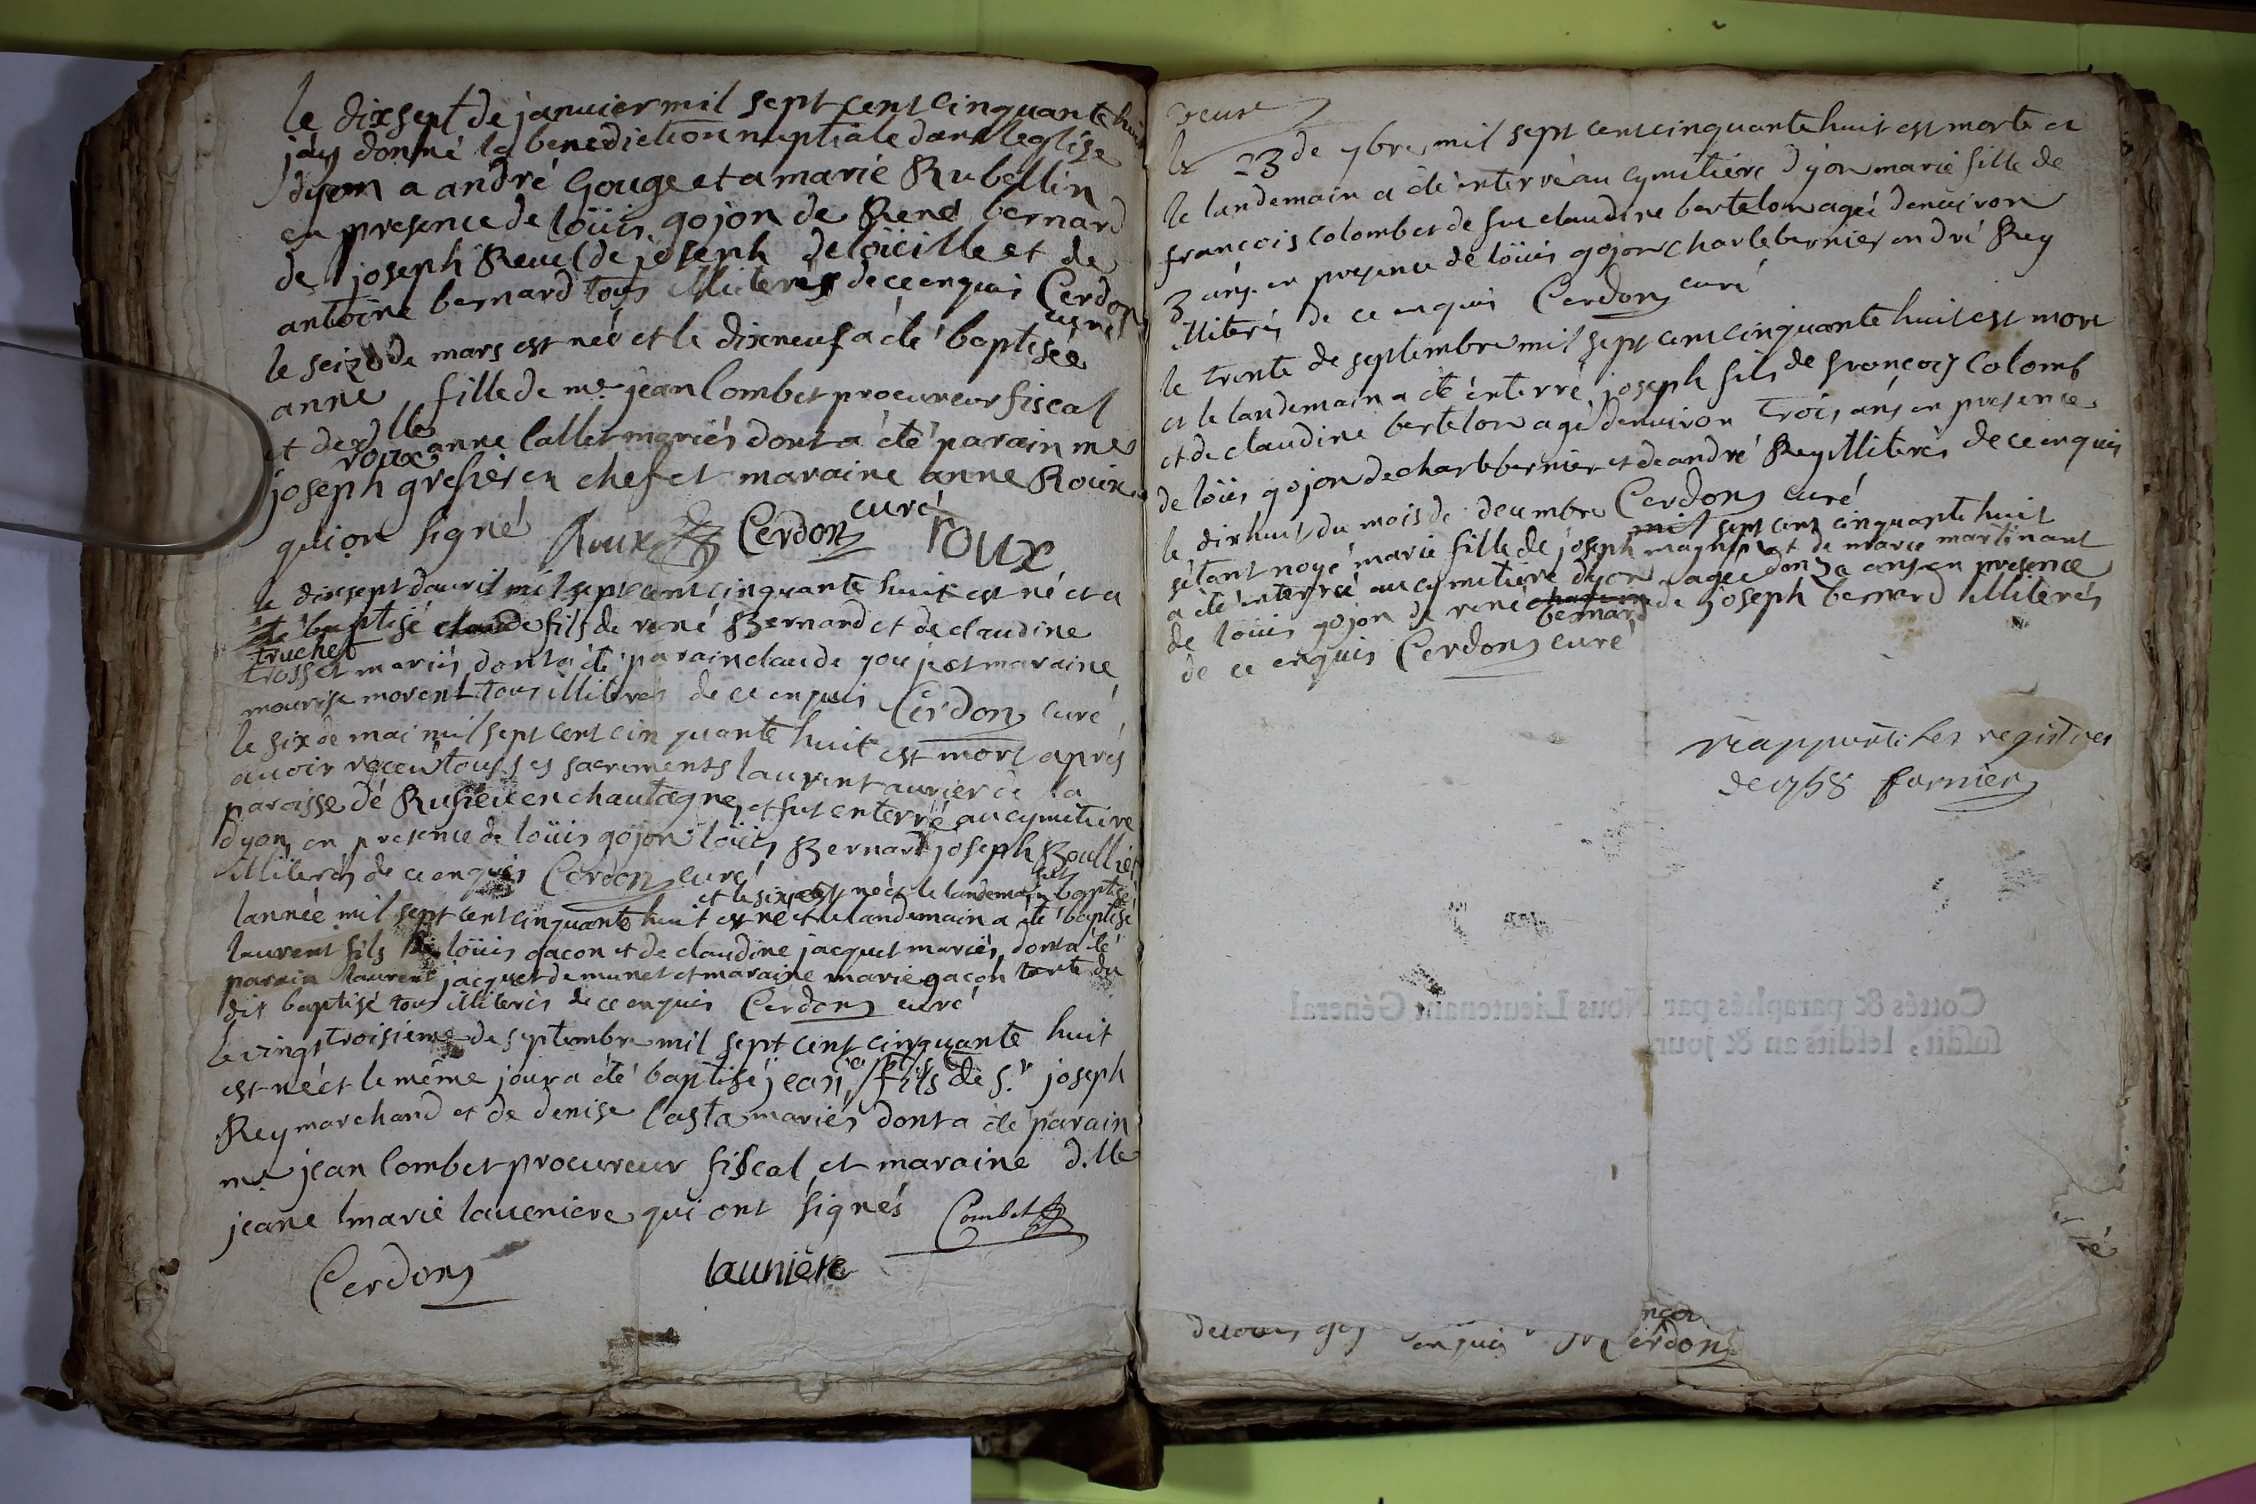 le dixsept de janvier mil sept cent cinquante huit
jay donné la benediction nuptiale dans leglise
dyon a andré Gouge et a marie Rubellin
en presence de loüis gojon de René bernard
de joseph Revel de joseph deloüeille et de
antoine bernard tous illiterés de ce enquis Cerdon
curé
le seize de mars est née et le dixneuf a été baptisée
anne fille de me jean Combet procureur fiscal
et de dlle anne Callet mariés dont a été parain me
joseph roux grefier en chef et maraine anne Roux
qui on signé Roux Cerdon curé roux
le dixsept davril mil sept cent cinquante huit est né et a
été baptisé claude fils de rené Bernard et de claudine
truchet
trosset mariés dont a été parain claude gouje et maraine
maurise morent tous illiterés de ce enquis Cerdon curé
le six de mai mil sept cent cinquante huit est mort aprés
avoir receu tous ses sacrements laurent aurier de la
paroisse de Rufieu en chautagne et fut enterré au cymetiere
dyon en presence de loüis gojon loüis Bernard joseph Boullie
illiterés de ce enquis Cerdon curé
et le six est né et le landemain baptisé
lannée mil sept cent cinquante huit est né et le landemain a été baptisé
laurent fils de loüis gacon et de claudine jacquet mariés dont a été
parain laurent jacquet de munet et maraine marie gacon tante du
dit baptisé tous illiterés de ce enquis Cerdon curé
le vingt troisieme de septembre mil sept cent cinquante huit
est né et le même jour a été baptisé jean fils de Sr joseph
Rey marchand et de denise Casta mariés dont a été parain
me jean Combet procureur fiscal et maraine d.lle
jeane marie laveniere qui ont signés Combet
Cerdon launière
le 23 de 7bre mil sept cent cinquante huit est morte et
le landemain a été enterrée au cymitiere dyon marie fille de
françois Colomb et de fue claudine bertelon agée denviron
3 ans en presence de loüis gojon charle bernier andré Rey
illiterés de ce enquis Cerdon curé
le trente de septembre mil sept cent cinquante huit est mort
et le landemain a été enterré joseph fils de françois Colomb
et de claudine bertelon agé denviron trois ans en presence
de loüis gojon de charle bernier et de andré Rey illiterés de ce enquis
Cerdon curé
le dixhuit du mois de decembre mil sept cent cinquante huit
sétant noyé marie fille de joseph magnin et de marie martinant
a été enterrée au cymitiere dyon agée donze ans en presence
de loüis gojon de rené bernard de joseph bernard illiterés
de ce enquis Cerdon curé
rapporté les registres
de 1758 fornier
Cottés & paraphés par Nous Lieutenant Général
susdit, lesdits an & jour
enquis Cerdon